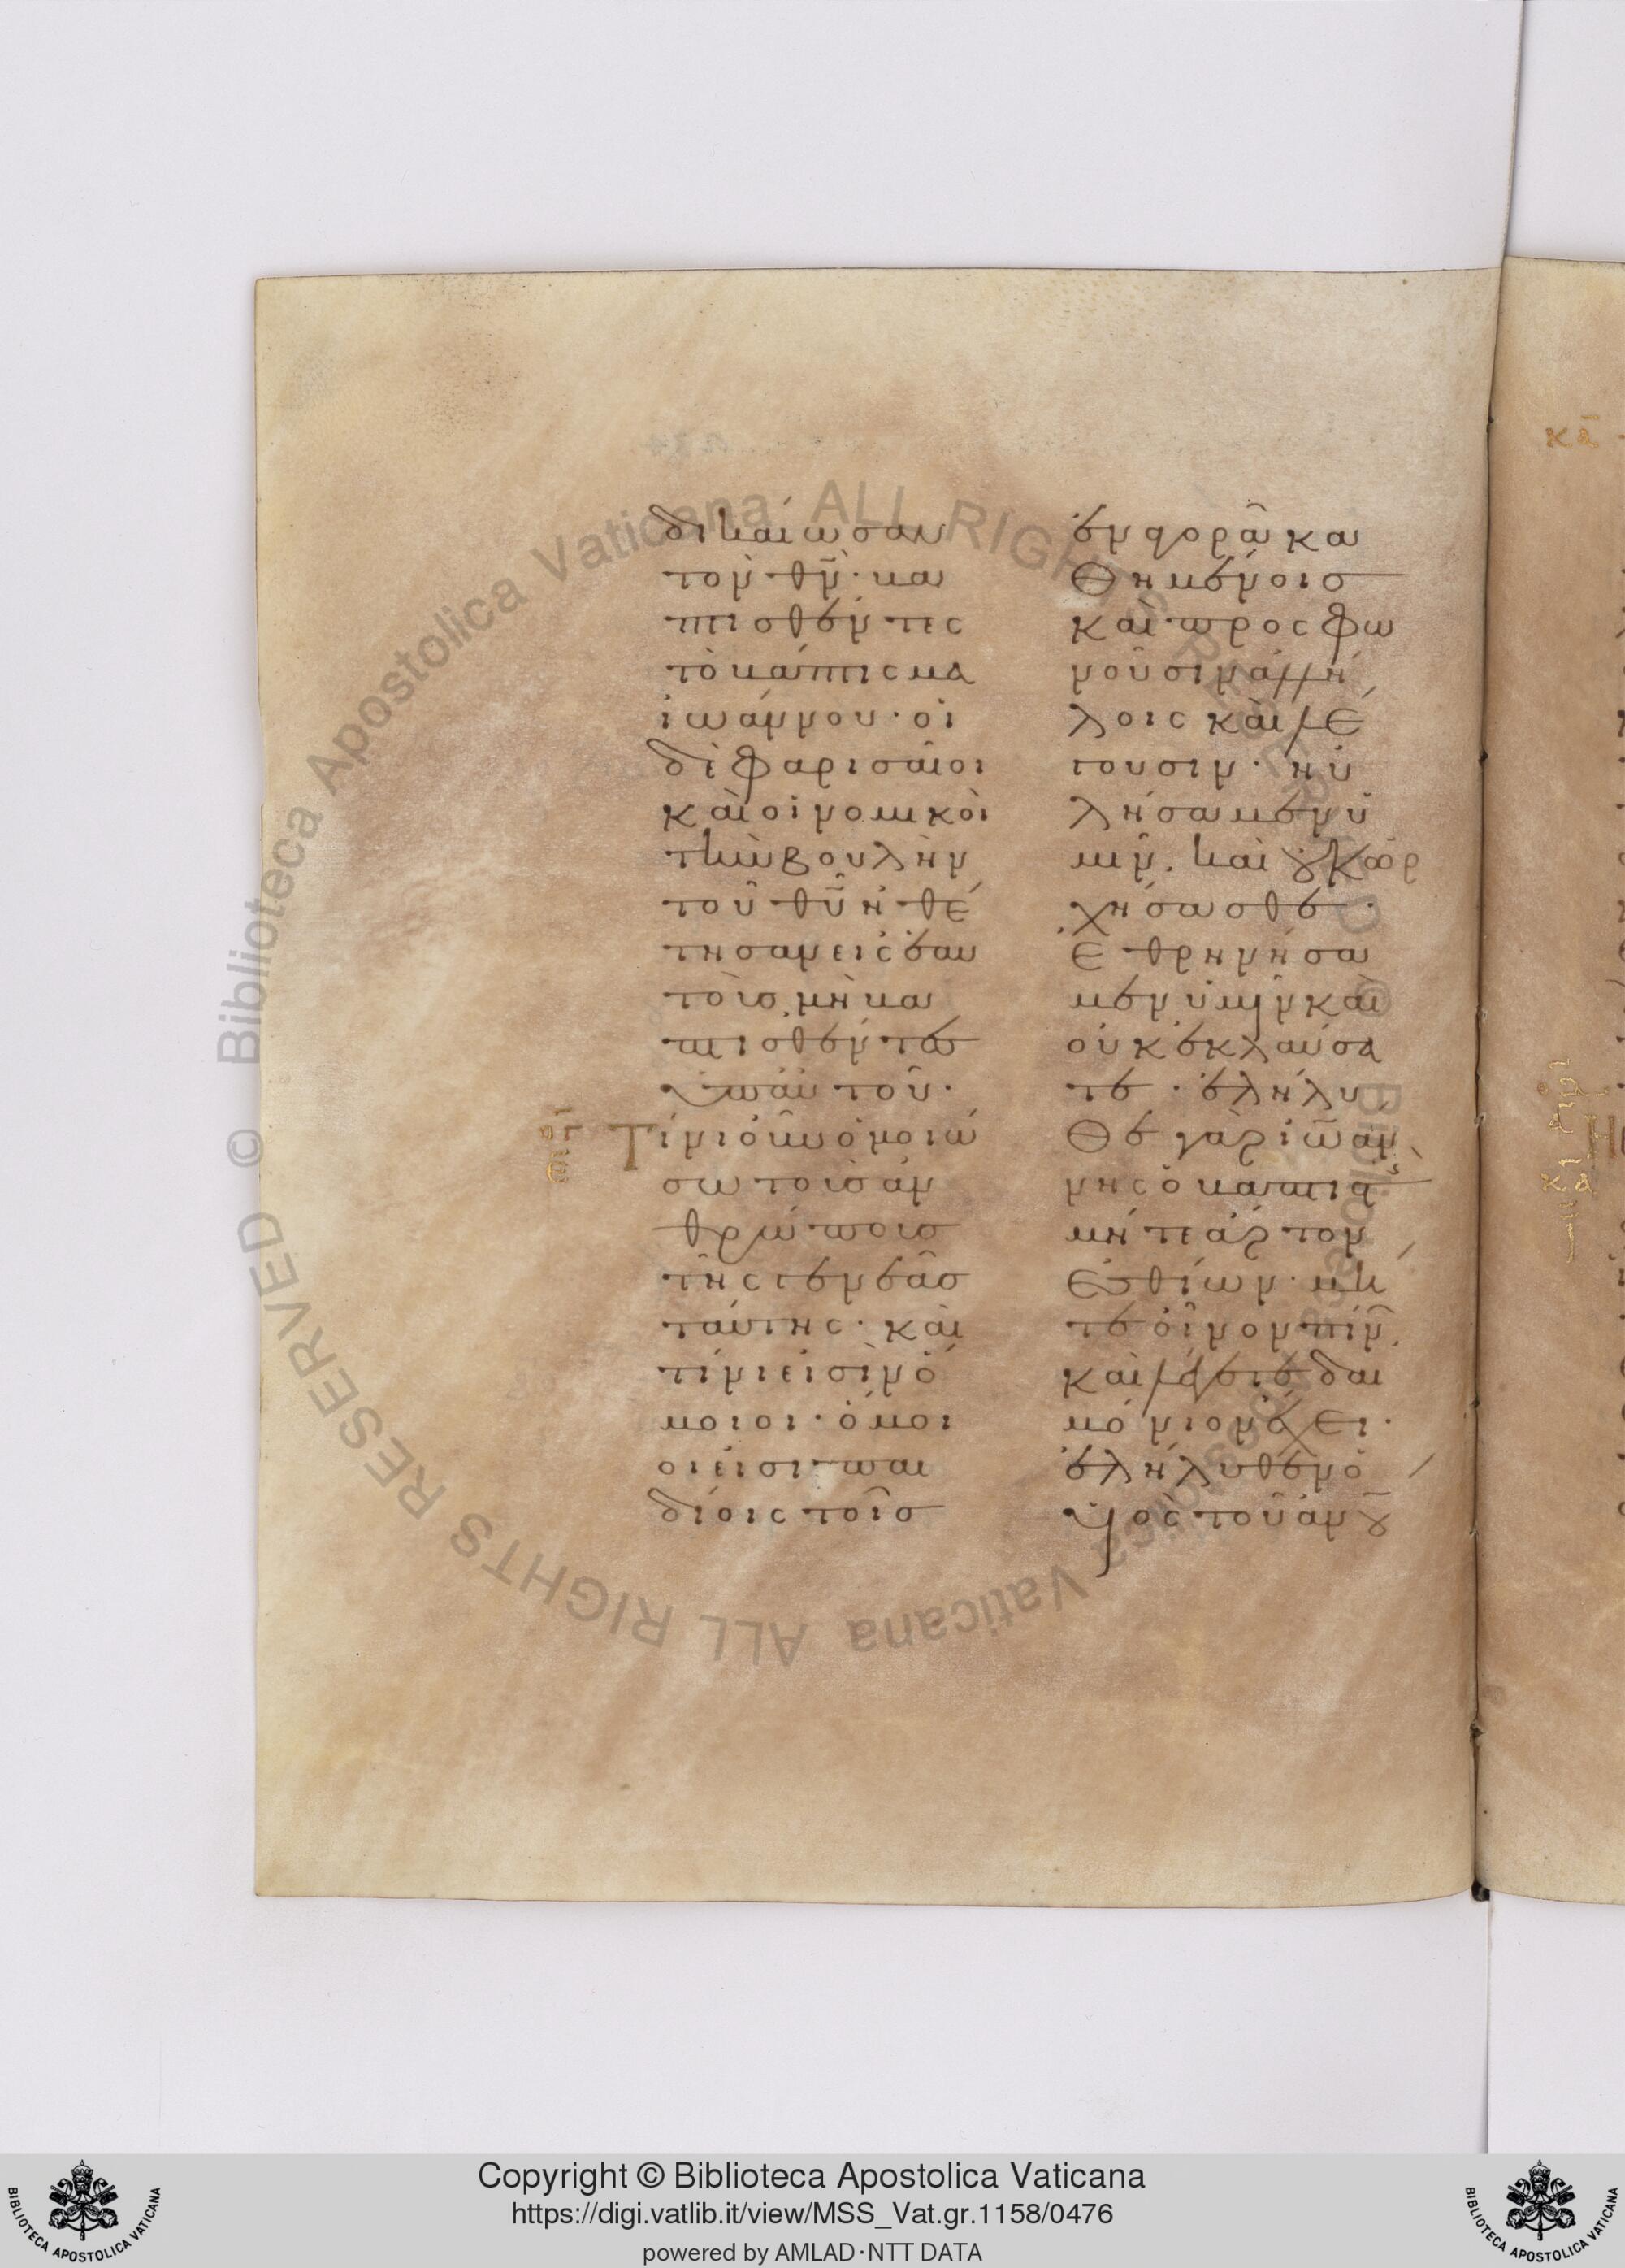 δικαίωσαν
τὸν θ̅ν̅· βα
πτισθέντες
τὸ βάπτισμα
ἰωάννου· οἱ
δὲ φαρισαῖοι
καὶ οἱ νομικοὶ
τὴν βουλὴν
τοῦ θ̅υ̅ ἠθέ
τησαν εἰς ἑαυ
τοὺς μὴ βα
πτισθέντες
ὑπ' αὐτοῦ·
Τίνι οὖν ὁμοιώ
σω τοὺς ἀν
θρώπους
τῆς γενεᾶς
ταύτης· καὶ
τίνι εἰσὶν ὅ
μοιοι· ὅμοι
οι εἰσι παι
δίοις τοῖς
ἐν ἀγορᾶ κα
θημένοις
καὶ προσφω
νοῦσιν ἀλλή
λοις καὶ λέ
γουσιν· ηὐ
λήσαμεν ὑ
μῖν. καὶ οὐκ ὠρ
χήσασθε·
ἐθρηνήσα
μεν ὑμῖν καὶ
οὐκ ἐκλαύσα
τε· ἐλήλυ
θε γὰρ ἰωάν
νης ὁ βαπτιστ(ὴς)
μήτε ἄρτον
ἐσθίων· μή
τε οἶνον πίν(ων)
καὶ λέγετε δαι
μόνιον ἔχει·
ἐλήλυθεν ὁ
υἱὸς τοῦ ἀνου
Copyright © Biblioteca Apostolica Vaticana
https://digi.vatlib.it/view/MSS_Vat.gr.1158/0476
powered by AMLAD·NTT DATA
BIBLIOTECA APOSTOLICA VATICANA
BIBLIOTECA APOSTOLICA VATICANA
© Biblioteca Apostolica Vaticana ALL RIGHTS RESERVED
© Biblioteca Apostolica Vaticana ALL RIGHTS RESERVED